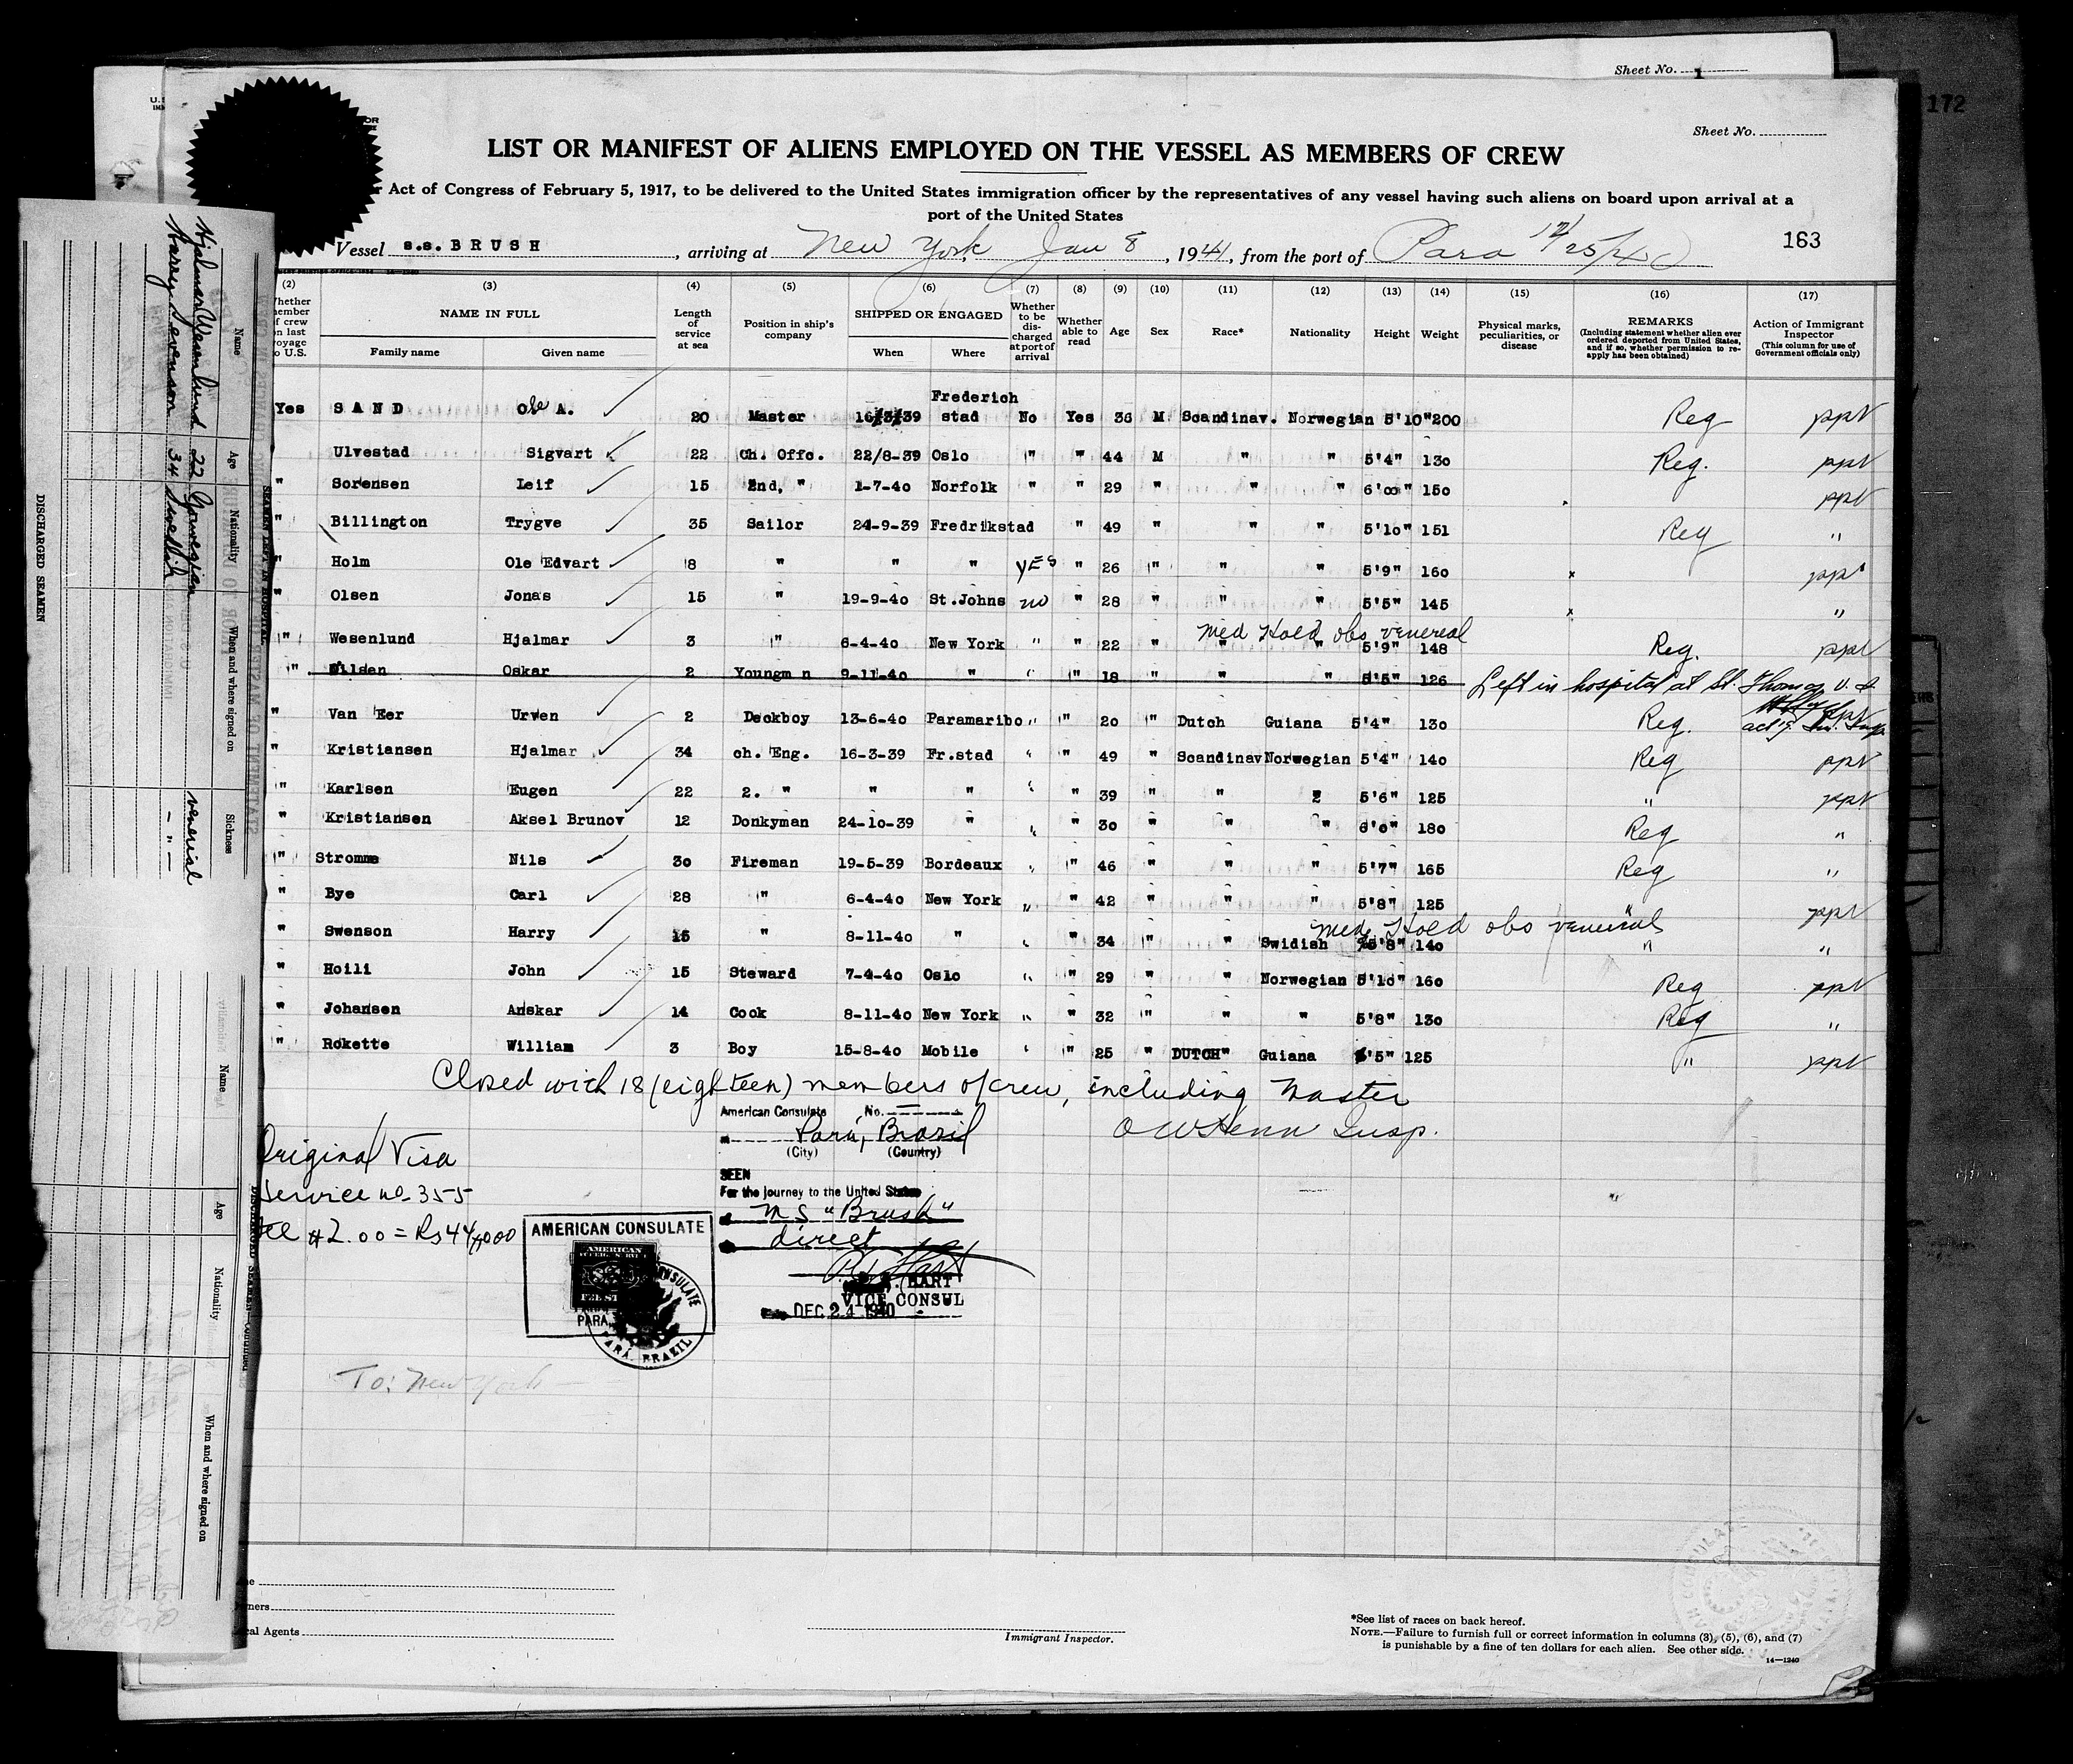 Sheet No. 1
172
Sheet No.
LIST OR MANIFEST OF ALIENS EMPLOYED ON THE VESSEL AS MEMBERS OF CREW
Act of Congress of February 5, 1917, to be delivered to the United States immigration officer by the representatives of any vessel having such aliens on board upon arrival at a
port of the United States
163
Vessel s.s. BRUSH, arriving at New York, Jan 8, 1941, from the port of Para 12/25/40
(2) (3) (4) (5) (6) (7) (8) (9) (10) (11) (12) (13) (14) (15) (16) (17)
Whether member of crew on last voyage to U.S.
NAME IN FULL
Family name Given name
Length of service at sea
Position in ship's company
SHIPPED OR ENGAGED
When Where
Whether to be discharged at port of arrival
Whether able to read
Age
Sex
Race*
Nationality
Height
Weight
Physical marks, peculiarities, or disease
REMARKS
(Including statement whether alien ever ordered deported from United States, and if so, whether permission to reapply has been obtained)
Action of Immigrant Inspector
(This column for use of Government officials only)
Yes SAND Ole A. 20 Master 16/3/39 Frederich stad No Yes 36 M Scandinav. Norwegian 5'10" 200 Reg ppt
Ulvestad Sigvart 22 Ch. Offc. 22/8-39 Oslo " " 44 M " " 5'4" 130 Reg. ppt
" Sorensen Leif 15 2nd, " 1-7-40 Norfolk " " 29 " " " 6'00" 150 ppt
" Billington Trygve 35 Sailor 24-9-39 Fredrikstad " 49 " " " 5'10" 151 Reg "
" Holm Ole Edvart 8 " " " YES " 26 " " " 5'9" 160 x ppt
" Olsen Jonas 15 " 19-9-40 St.Johns no " 28 " " " 5'5" 145 x "
Med Hold obs venereal
" Wesenlund Hjalmar 3 " 6-4-40 New York " " 22 " " " 5'9" 148 Reg. ppt
" Nilsen Oskar 2 Youngm n 9-11-40 " " " 18 " " " 5'5" 126 Left in hospital at St. Thomas V. I.
" Van Eer Urven 2 Deckboy 13-6-40 Paramaribo " " 20 " Dutch Guiana 5'4" 130 Reg. ppt
" Kristiansen Hjalmar 34 ch. Eng. 16-3-39 Fr.stad " " 49 " Scandinav Norwegian 5'4" 140 Reg ppt
" Karlsen Eugen 22 2. " " " " " 39 " " 2 5'6" 125 " ppt
" Kristiansen Aksel Brunov 12 Donkyman 24-10-39 " " " 30 " " " 6'0" 180 Reg "
" Stromme Nils 30 Fireman 19-5-39 Bordeaux " " 46 " " " 5'7" 165 Reg "
" Bye Carl 28 " 6-4-40 New York " " 42 " " " 5'8" 125 " ppt
Med Hold obs venereal
" Swenson Harry 15 " 8-11-40 " " " 34 " " Swidish 5'8" 140 " "
" Hoili John 15 Steward 7-4-40 Oslo " " 29 " " Norwegian 5'10" 160 Reg ppt
" Johansen Anskar 14 Cook 8-11-40 New York " " 32 " " " 5'8" 130 Reg "
" Rokette William 3 Boy 15-8-40 Mobile " " 25 " DUTCH" Guiana 5'5" 125 " ppt
Closed with 18 (eighteen) members of crew, including Master
American Consulate No.
Pará, Brazil
(City) (Country)
O W Henn Insp.
Original Visa
Service no. 355
fee $2.00 = Rs 44$000
SEEN
For the journey to the United States
MS "Brush"
direct
HART
VICE CONSUL
DEC 24 1940
AMERICAN CONSULATE
AMERICAN
PARÁ,
PARÁ, BRAZIL
To: New York
Immigrant Inspector.
*See list of races on back hereof.
NOTE.—Failure to furnish full or correct information in columns (3), (5), (6), and (7)
is punishable by a fine of ten dollars for each alien. See other side.
14—1240
Name Age Nationality When and where signed on Sickness
Hjalmar Wesenlund 22 Norwegian venerial
Harry Svenson 34 Swedish - " -
DISCHARGED SEAMEN
Name Age Nationality When and where signed on